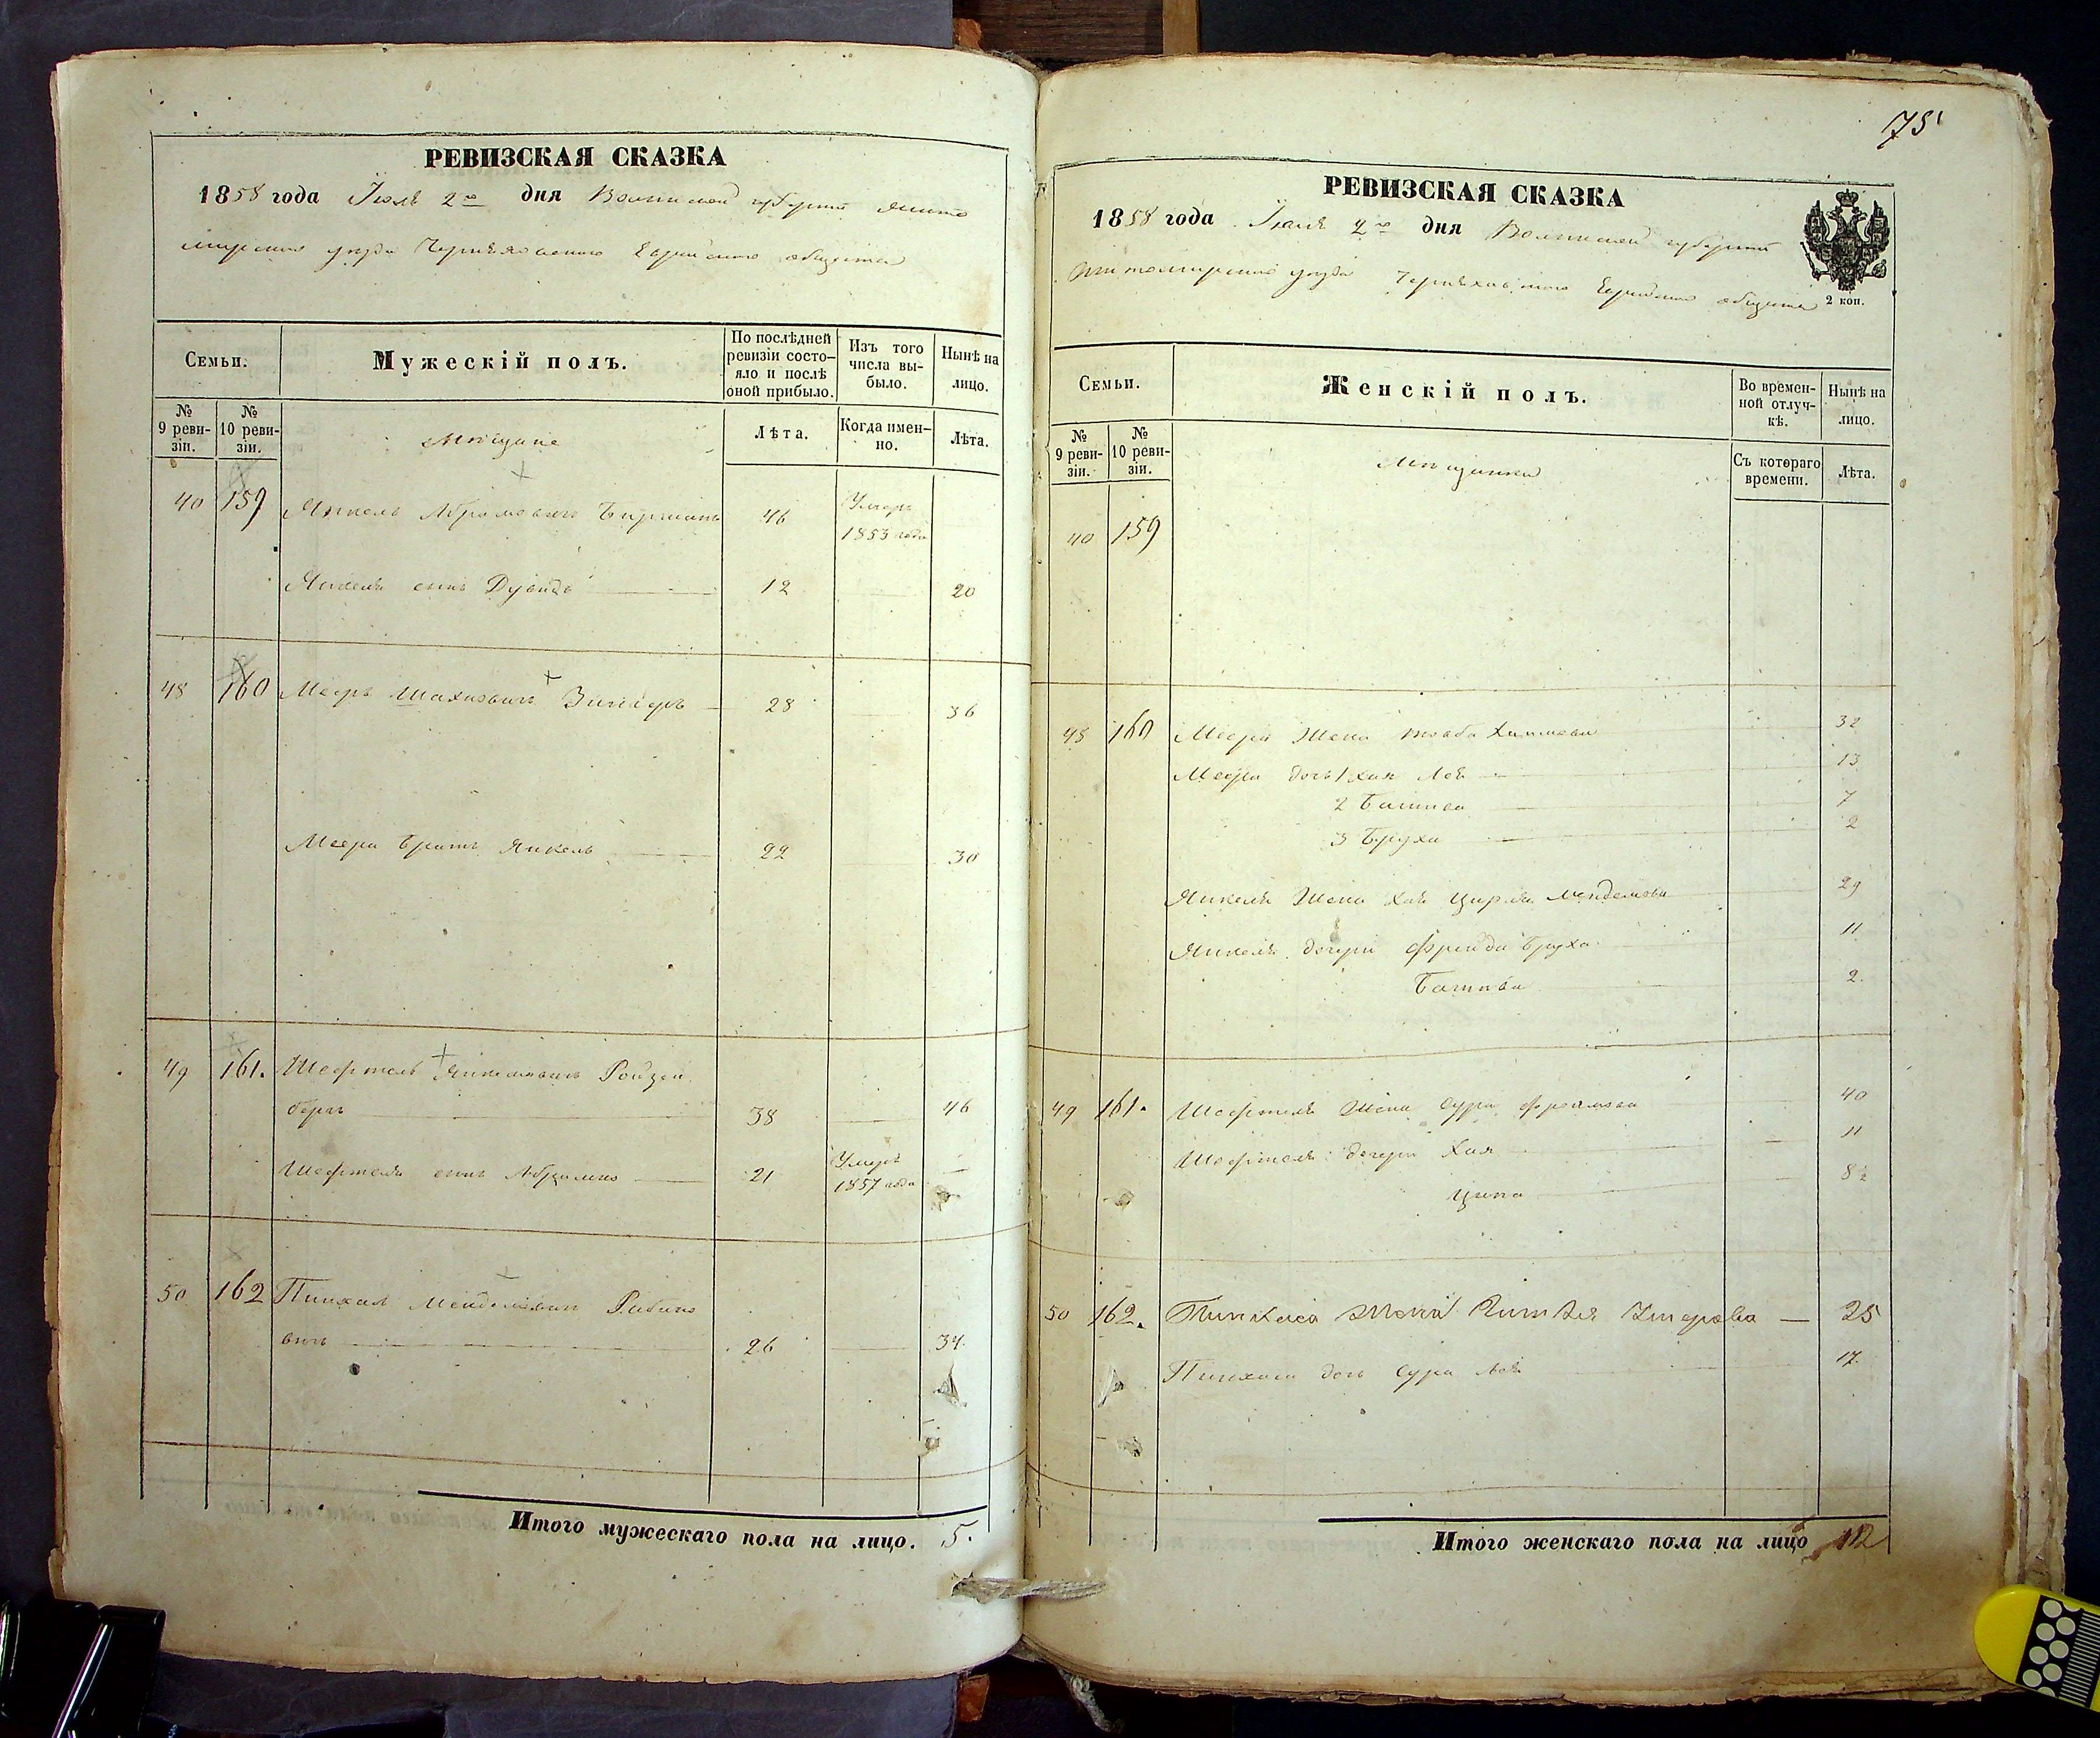 РЕВИЗСКАЯ СКАЗКА
1858 года Іюля 2го дня Волынской губерніи Жито
мирскаго уезда Черняховскаго Еврейскаго общества
Семьи.
Мужескій полъ.
По послѣдней ревизіи состо-яло и послѣ оной прибыло.
Изъ того числа вы-было.
Нынѣ на лицо.
№ 9 реви-зіи.
№ 10 реви-зіи.
Мѣщане
Лѣта.
Когда имен-но.
Лѣта.
40 159 Янкель Абрамовичъ 46 Умеръ 1853 года
Янкеля сынъ Дувидъ 12 20
48 160 Мееръ Шахновичъ 28 36
Меера братъ Янкель 22 30
49 161. Шефтель Янкелевичъ Ройзен
бергъ 38 46
Шефтеля сынъ 21 Умеръ 1857 года
50 162 Пинхас Менделевичъ Рабино
вичъ 26 34
Итого мужескаго пола на лицо. 5.
75
РЕВИЗСКАЯ СКАЗКА
1858 года Іюля 2го дня Волынской губерніи
Житомирскаго уезда Черняховскаго Еврейскаго общества
2 коп.
Семьи.
Женскій полъ.
Во времен-ной отлуч-кѣ.
Нынѣ на лицо.
№ 9 реви-зіи.
№ 10 реви-зіи.
Мѣщанки
Съ котораго времени.
Лѣта.
40 159
48 160 Меера жена 32
Меера дочь 1 Хая Лея 13
2 Башева 7
3 Бруха 2
Янкеля жена Хая Цирля Менделева 29
Янкеля дочери Фрейда Бруха 11
Башева 2
49 161. Шефтеля жена Сура 40
Шефтеля дочери Хая 11
Ципа 8½
50 162. Пинхаса жена 25
Пинхаса дочь Сура Лея 17
Итого женскаго пола на лицо 12